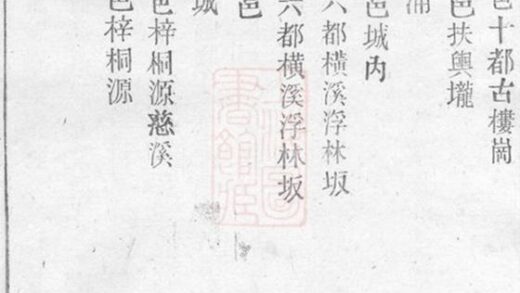 邑十都古樓崗
邑扶輿壠
浦
邑城內
六都橫溪浮林坂
六都橫溪浮林坂
邑
城
邑梓桐源慈溪
邑梓桐源